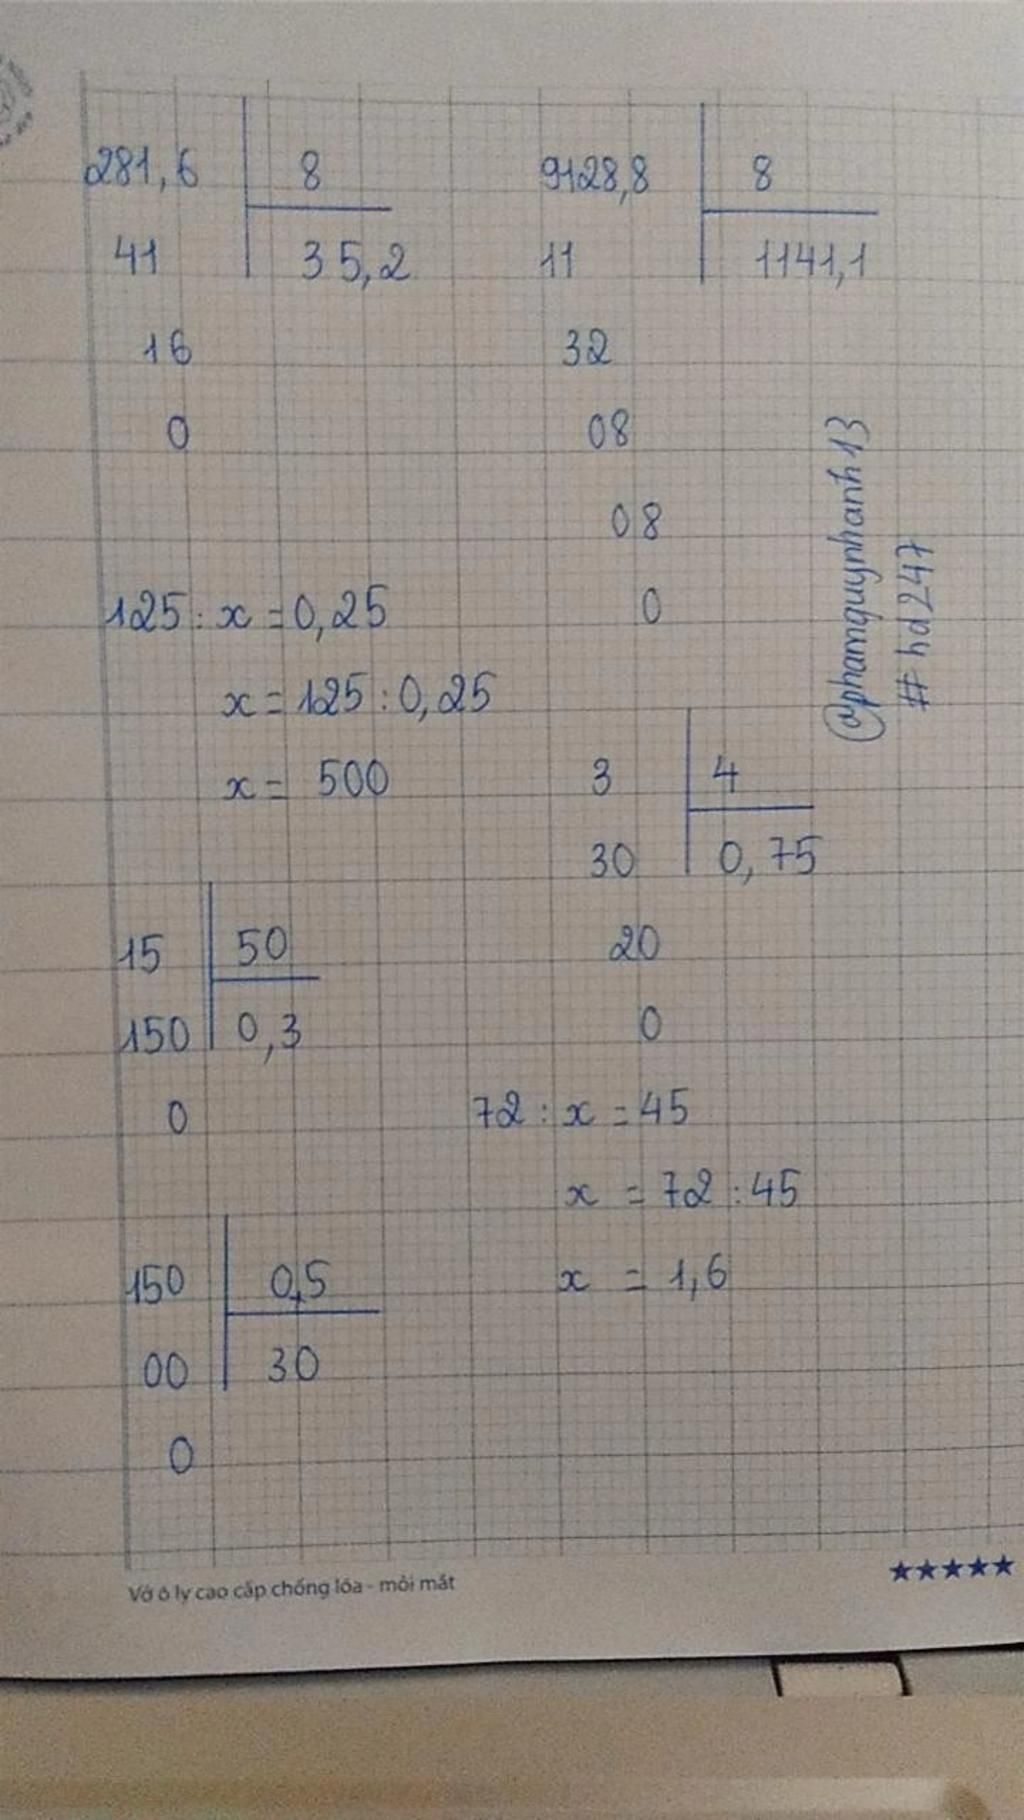 281,6 8
41 35,2
16
0
9128,8 8
11 1141,1
32
08
08
0
125 : x = 0,25
x = 125 : 0,25
x = 500
3 4
30 0,75
20
0
15 50
150 0,3
0
72 : x = 45
x = 72 : 45
x = 1,6
150 0,5
00 30
0
@phamquynhanh13
#hd247
Vở ô ly cao cấp chống lóa - mỏi mắt